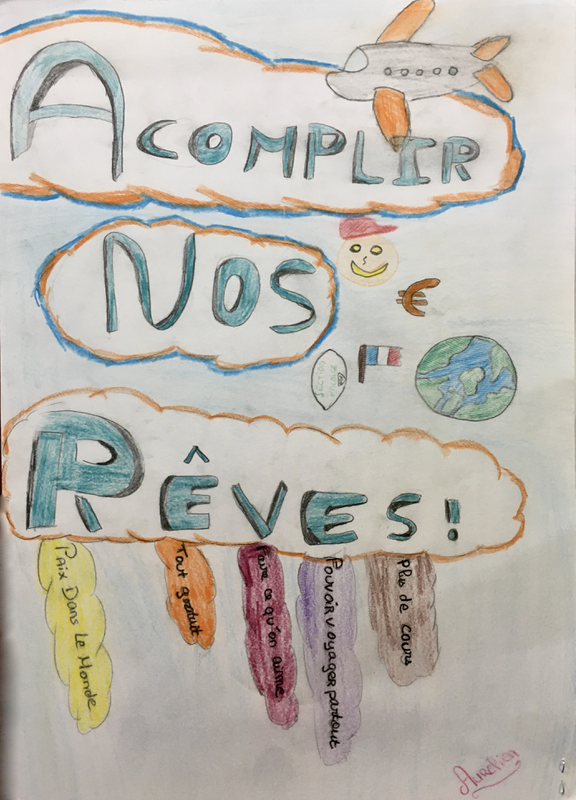 ACOMPLIR
NOS
RÊVES!
Paix Dans Le Monde
Tout gratuit
Faire ce qu'on aime
Pouvoir voyager partout
Plus de cours
Aurélien